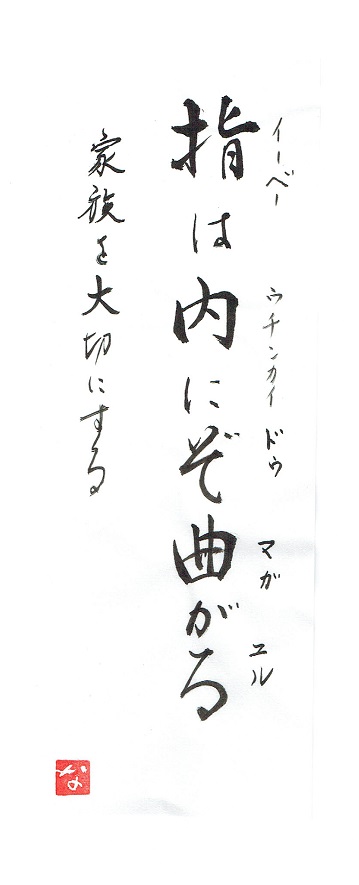 イーベー ウチンカイ ドゥ マガ エル
指は内にぞ曲がる
家族を大切にする
な